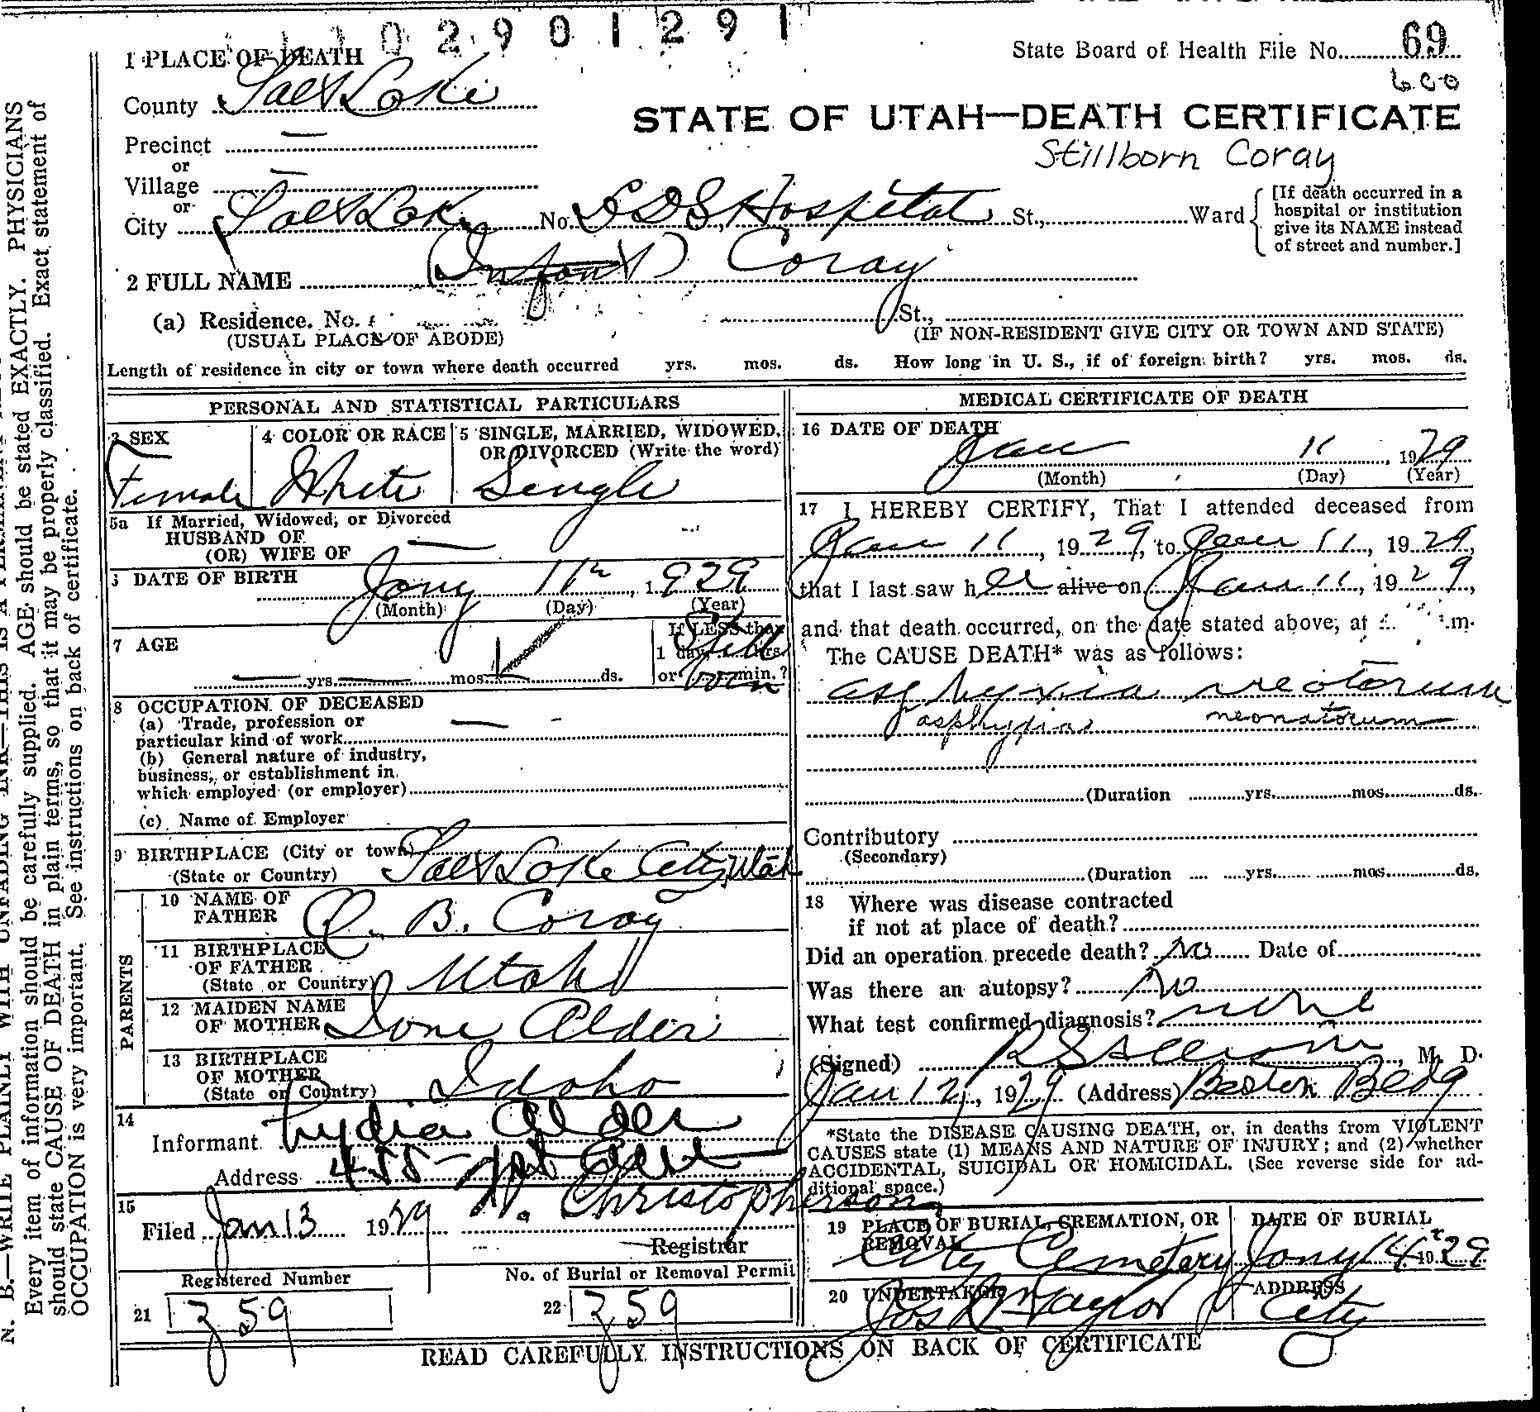 02901291
State Board of Health File No. 69
600
1 PLACE OF DEATH
County Salt Lake
STATE OF UTAH—DEATH CERTIFICATE
Precinct —
Stillborn Coray
or
Village —
or
City Salt Lake No. LDS Hospital St., Ward
[If death occurred in a hospital or institution give its NAME instead of street and number.]
2 FULL NAME (Infant) Coray
(a) Residence. No. St.,
(USUAL PLACE OF ABODE) (IF NON-RESIDENT GIVE CITY OR TOWN AND STATE)
Length of residence in city or town where death occurred yrs. mos. ds. How long in U. S., if of foreign birth? yrs. mos. ds.
PERSONAL AND STATISTICAL PARTICULARS
3 SEX
Female
4 COLOR OR RACE
White
5 SINGLE, MARRIED, WIDOWED, OR DIVORCED (Write the word)
Single
5a If Married, Widowed, or Divorced
HUSBAND OF
(OR) WIFE OF —
6 DATE OF BIRTH Jany 11th 1929
(Month) (Day) (Year)
7 AGE
— yrs. — mos. ds.
If LESS than
1 day hrs.
or min.?
Still born
8 OCCUPATION OF DECEASED
(a) Trade, profession or
particular kind of work —
(b) General nature of industry,
business, or establishment in
which employed (or employer)
(c) Name of Employer
9 BIRTHPLACE (City or town)
(State or Country) Salt Lake City, Utah
PARENTS
10 NAME OF
FATHER B. Coray
11 BIRTHPLACE
OF FATHER
(State or Country) Utah
12 MAIDEN NAME
OF MOTHER Ione Alder
13 BIRTHPLACE
OF MOTHER
(State or Country) Idaho
14
Informant Lydia Alder
Address
15
Filed Jan 13 1929 Christopherson
Registrar
Registered Number
21 359
No. of Burial or Removal Permit
22 359
MEDICAL CERTIFICATE OF DEATH
16 DATE OF DEATH
Jan 11, 1929
(Month) (Day) (Year)
17 I HEREBY CERTIFY, That I attended deceased from
Jan 11, 1929, to Jan 11, 1929,
that I last saw her alive on Jan 11, 1929,
and that death occurred, on the date stated above, at m.
The CAUSE DEATH* was as follows:
asphyxia neotorum
asphyxia neonatorum
(Duration yrs. mos. ds.
Contributory
(Secondary)
(Duration yrs. mos. ds.
18 Where was disease contracted
if not at place of death?
Did an operation precede death? No Date of
Was there an autopsy? No
What test confirmed diagnosis? none
(Signed) R S Allison, M. D.
Jan 12, 1929 (Address) Boston Bldg
*State the DISEASE CAUSING DEATH, or, in deaths from VIOLENT
CAUSES state (1) MEANS AND NATURE OF INJURY; and (2) whether
ACCIDENTAL, SUICIDAL OR HOMICIDAL. (See reverse side for ad-
ditional space.)
19 PLACE OF BURIAL, CREMATION, OR
REMOVAL
City Cemetery
DATE OF BURIAL
Jany 14 1929
20 UNDERTAKER
Taylor
ADDRESS
City
READ CAREFULLY INSTRUCTIONS ON BACK OF CERTIFICATE
Every item of information should be carefully supplied. AGE should be stated EXACTLY. PHYSICIANS
should state CAUSE OF DEATH in plain terms, so that it may be properly classified. Exact statement of
OCCUPATION is very important. See instructions on back of certificate.